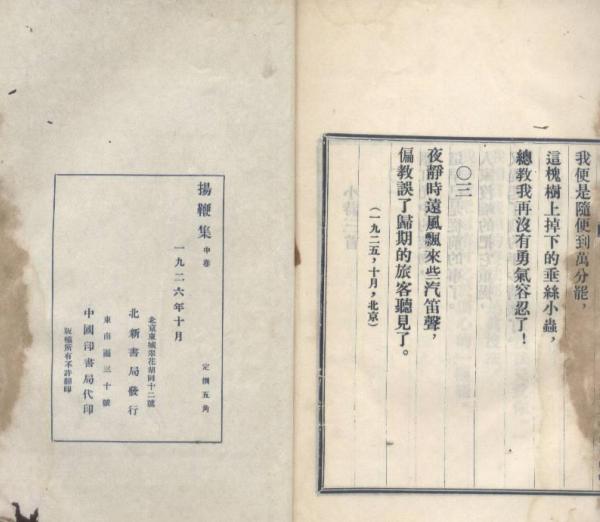 我便是隨便到萬分罷，
這槐樹上掉下的垂絲小蟲，
總教我再沒有勇氣容忍了！
〇三
夜靜時遠風飄來些汽笛聲，
偏教誤了歸期的旅客聽見了。
（一九二五，十月，北京）
揚鞭集 中卷
一九二六年十月
定價五角
北京東城翠花胡同十二號
北新書局發行
東南園三十號
中國印書局代印
版權所有不許翻印